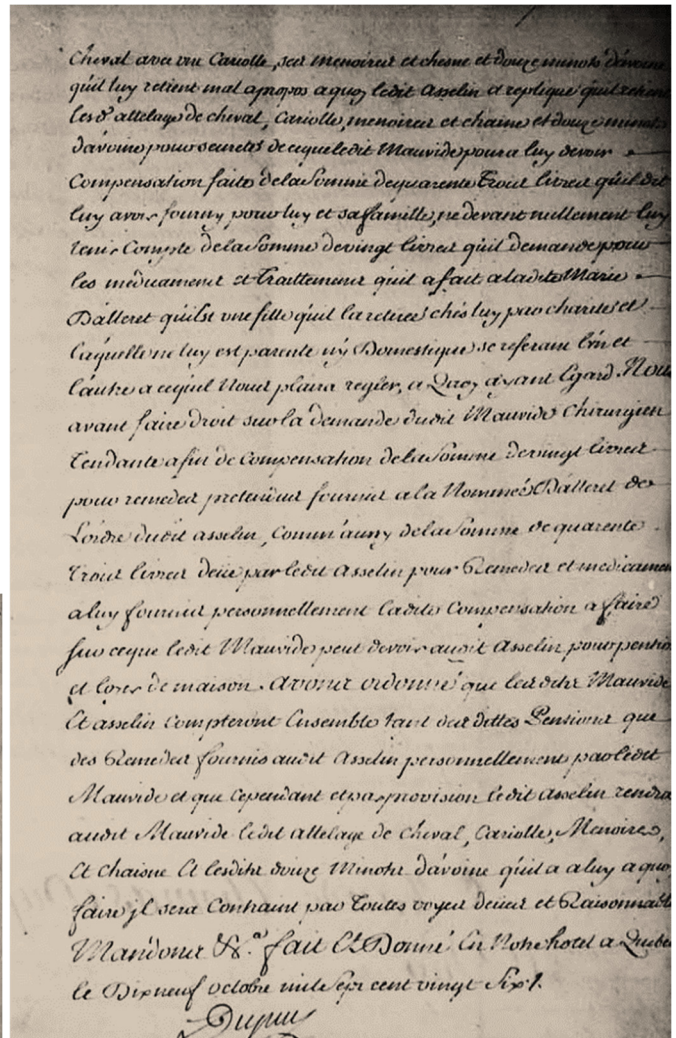 Cheval avec une Cariolle, ses menoires et chesne et douze minots d'avoine
qu'il luy retient mal apropos a quoy ledit Asselin a repliqué qu'il retient
les dt attelage de cheval, Cariolle, menoires et chaine et douze minots
davoine pour seureté de ceque ledit Mauvide poura luy devoir
Compensation faite de la Somme de quarente Trois livres qu'il dit
luy avoir fourny pour luy et sa famille, ne devant nullement luy
tenir Compte de la Somme de vingt livres quil demande pour
les médicaments et traittements qu'il a fait a ladite Marie
Dalleret quil une fille qu'il la retirée chés luy par charité et
laquelle ne luy est parente ny Domestique se referant l'un et
l'autre a cequil Nous plaira regler, a Quoy ayant Egard. Nous
avant faire droit sur la demande dudit Mauvide Chirurgien
Tendante afin de compensation de la Somme de vingt livres
pour remedes pretendus fournis a la Nommée Dalleret de
L'ordre dudit asselin, Comm'aussy de la Somme de quarente
Trois livres deüe par ledit Asselin pour Remedes et medicamens
a luy fournis personnellement ladite Compensation a faire
sur ceque ledit Mauvide peut devoir audit Asselin pour pention
et loyer de maison. Avons ordonné que lesdits Mauvide
Et asselin Compteront Ensemble tant des dittes Pensions que
des Remedes fournis audit Asselin personnellement par ledit
Mauvide et que Cependant et par provision ledit Asselin rendra
audit Mauvide ledit attelage de Cheval, Cariolle, Menoires,
Et chaisne Et lesdits douze Minots d'avoine qu'il a a luy a quoy
faire jl sera Contraint par Toutes voyes deües et Raisonnables
Mandons &.a fait Et Donné En Notre hotel a Quebec
le Dix neuf octobre mil Sept cent vingt Six ./.
Dupuy